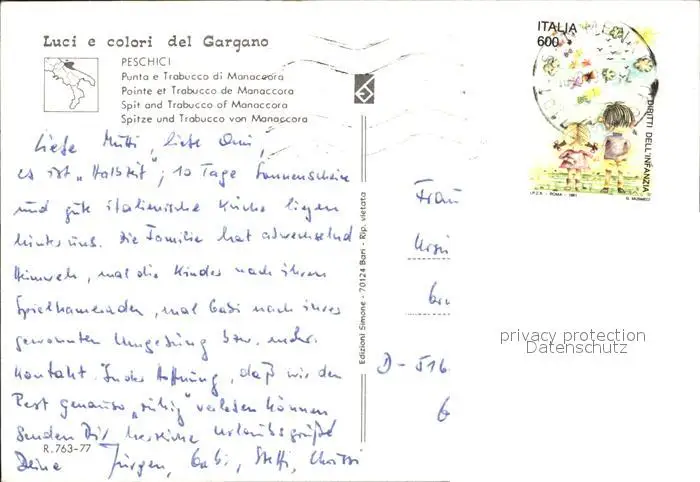 Luci e colori del Gargano
PESCHICI
Punta e Trabucco di Manaccora
Pointe et Trabucco de Manaccora
Spit and Trabucco of Manaccora
Spitze und Trabucco von Manaccora
Liebe Mutti, liebe Omi,
es ist "Halbzeit"; 10 Tage Sonnenscheine
und gute italienische Küche liegen
hinter uns. Die Familie hat abwechselnd
Heimweh, mal die Kinder nach ihren
Spielkameraden, mal Gabi nach ihrer
gewohnten Umgebung bzw. mehr.
Kontakt. In der Hoffnung, daß wir den
Rest genauso "ruhig" verleben können
senden Dir herzliche Urlaubsgrüße
R. 763-77
Deine Jürgen, Gabi, Steffi, Christi
Edizioni Simone - 70124 Bari - Rip. vietata
ITALIA
600
DIRITTI DELL'INFANZIA
I.P.Z.S. - ROMA - 1991
Frau
D-516
privacy protection
Datenschutz